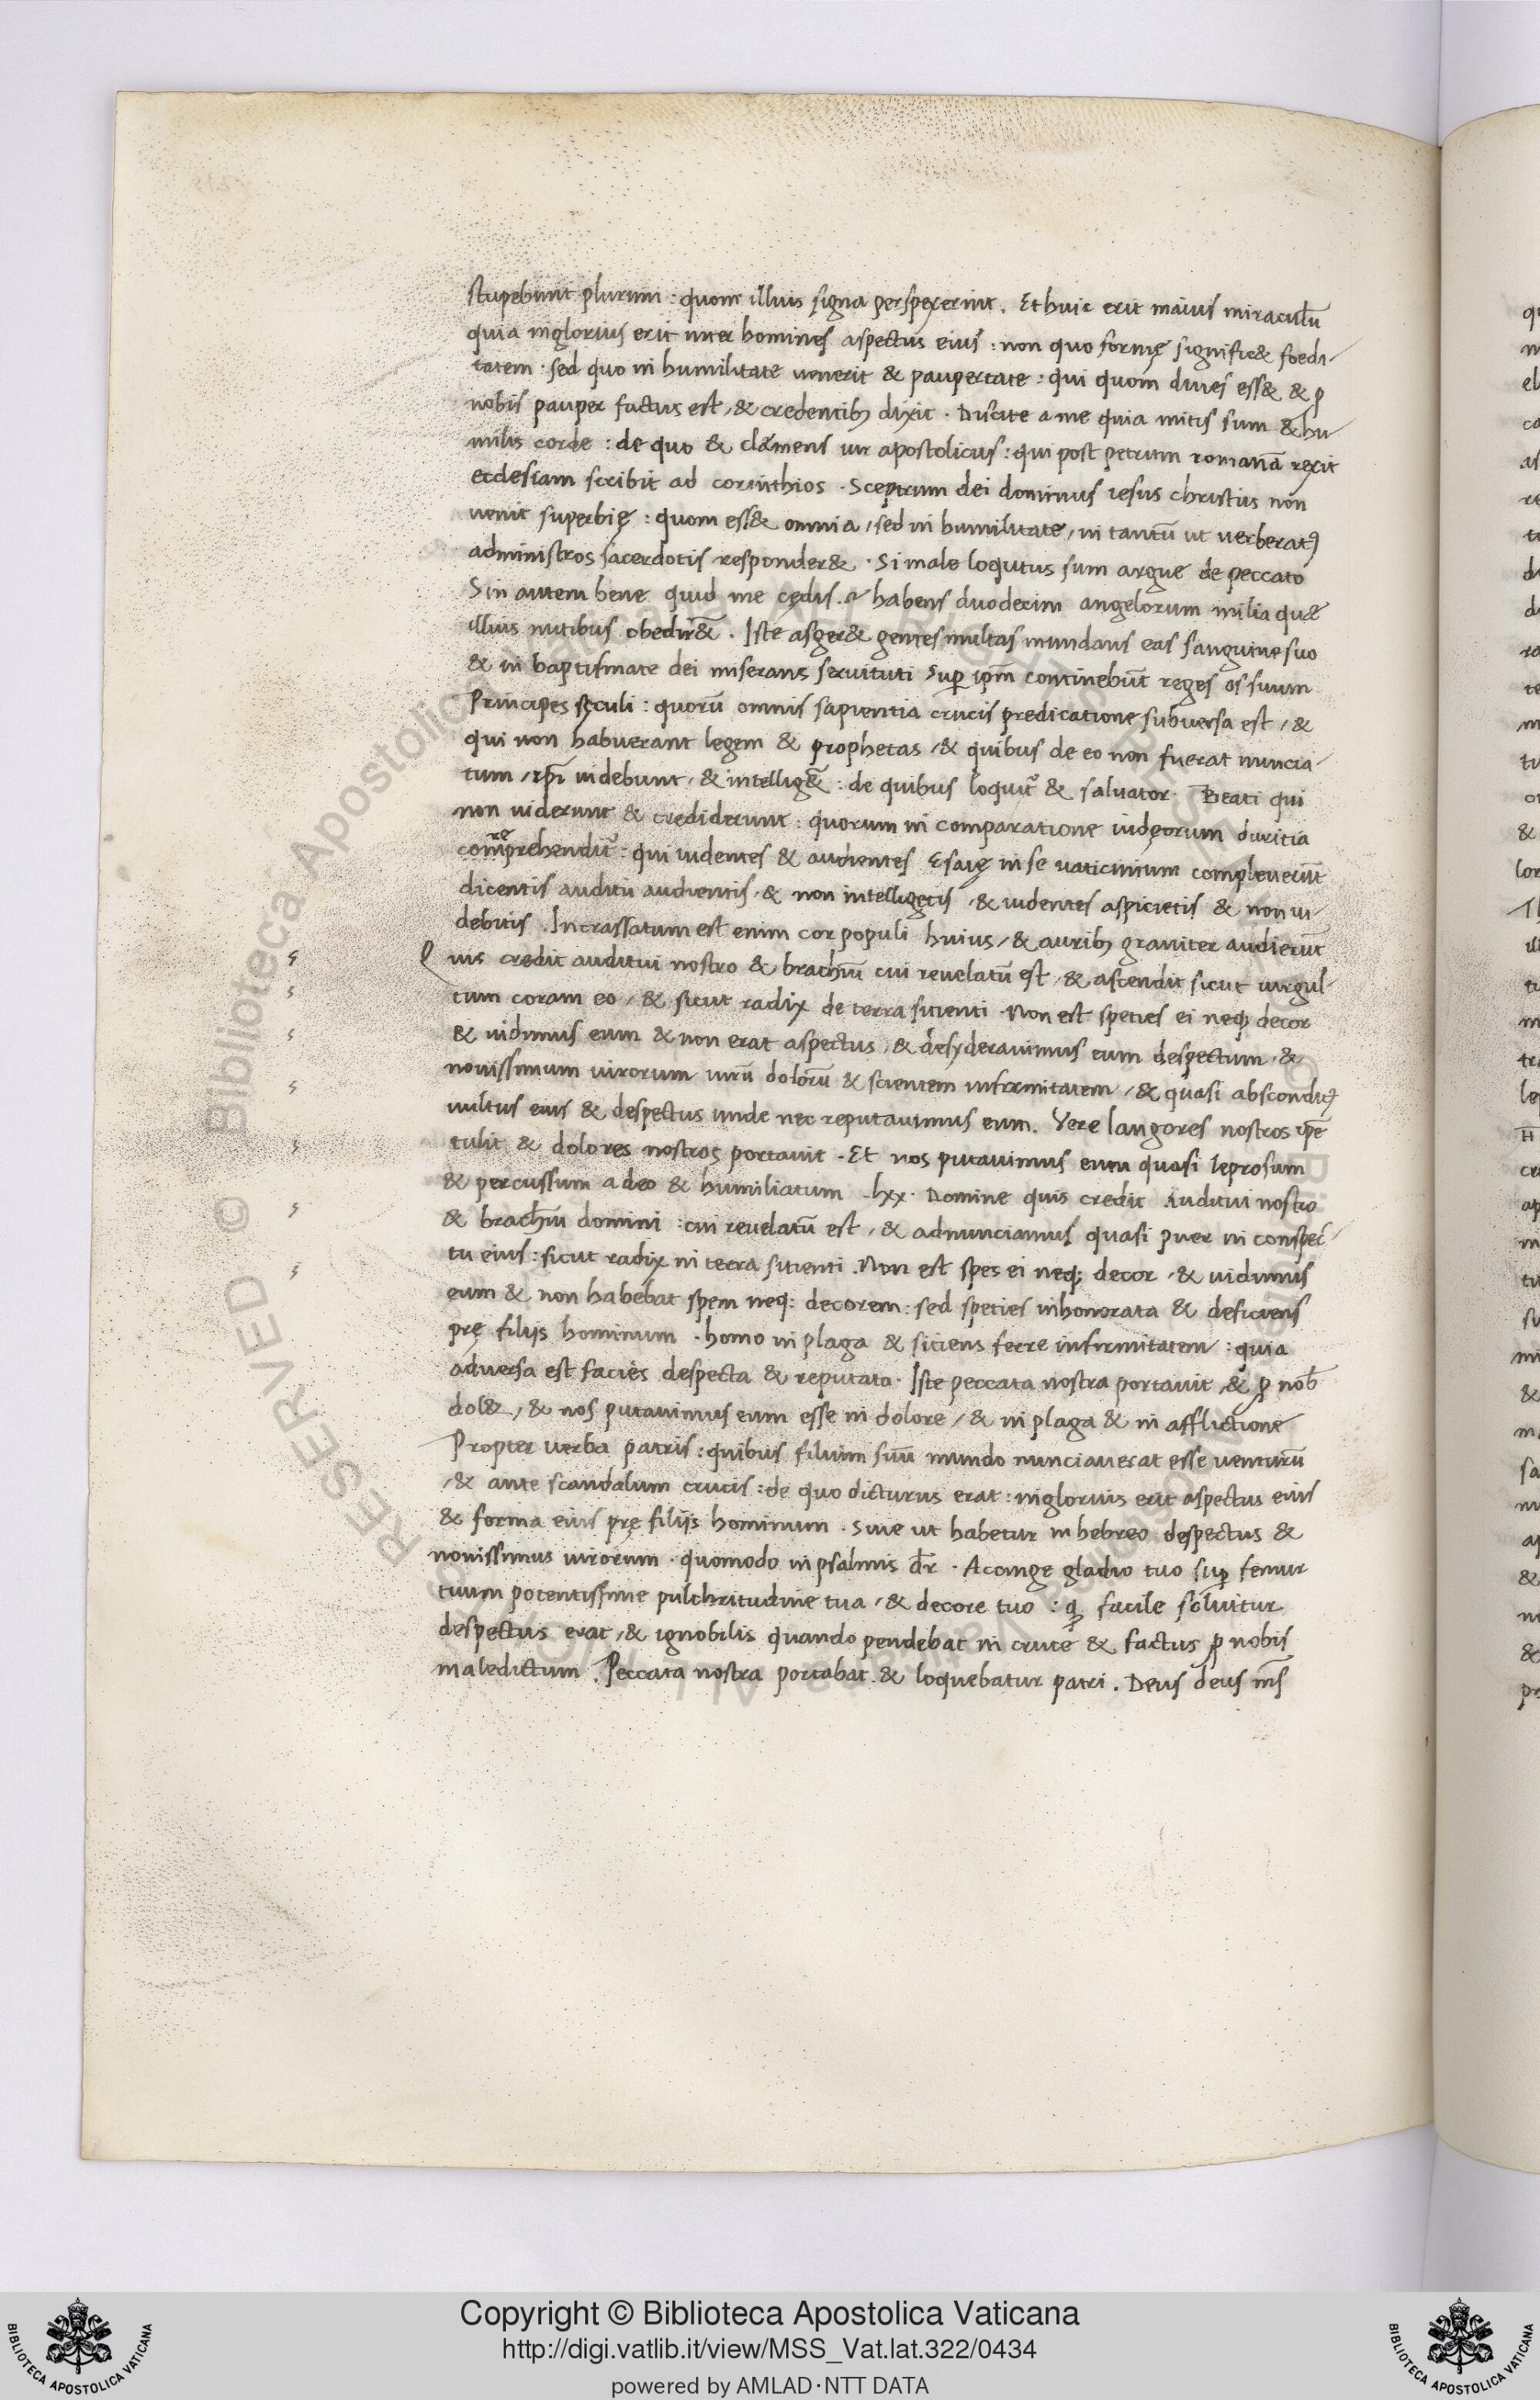 stupebunt plurimi : quom illius signa perspexerint . Et huic erit maius miracul̄u
quia inglorius erit inter homines aspectus eius : non quo formę significet foedi-
tatem : sed quo in humilitate uenerit & paupertate : qui quom diues esset & ꝓ
nobis pauper factus est, & credentibꝫ dixit . Discite a me quia mitis sum & hu-
milis corde : de quo & clæmens uir apostolicus : qui post petrum romanā rexit
ecclesiam scribit ad corinthios . Sceptrum dei dominus iesus christus non
uenit superbię : quom esset omnia, sed in humilitate, in tantū ut uerberatꝰ
administros sacerdotis responderet . Si male loqutus sum argue de peccato
Sin autem bene quid me cędis . & habens duodecim angelorum milia quæ
illius nutibus obedirēt . Iste asgeret gentes multas mundans eas sanguine suo
& in baptismate dei miserans seruituti Suꝑ ip̄m continebūt reges os suum
Principes sęculi : quorū omnis sapientia crucis predicatione subuersa est, &
qui non habuerant legem & prophetas, & quibus de eo non fuerat nuncia-
tum, ip̄i uidebunt, & intelligēt : de quibus loquit̃ & saluator . Beati qui
non uiderunt & crediderunt : quorum in comparatione iudęorum duritia
comprehendit̃ : qui uidentes & audientes Esaię in se uaticinium compleuerūt
dicentis auditu audientis, & non intelligetis, & uidentes aspicietis & non ui-
debitis . Incrassatum est enim cor populi huius, & auribꝫ grauiter audierūt
Quis credit auditui nostro & brachiū cui reuelatū est, & ascendit sicut uirgul-
tum coram eo, & sicut radix de terra sitienti . Non est species ei neqꝫ decor
& uidimus eum & non erat aspectus, & desyderauimus eum despectum, &
nouissimum uirorum uirū dolorū & scientem infirmitatem, & quasi absconditꝰ
uultus eius & despectus unde nec reputauimus eum . Vere langores nostros ip̄e
tulit & dolores nostros portauit . Et nos putauimus eum quasi leprosum
& percussum a deo & humiliatum . lxx . Domine quis credit auditui nostro
& brachiū domini : cui reuelatū est, & adnunciamus quasi puer in conspec-
tu eius : sicut radix in terra sitienti . Non est spes ei neqꝫ decor, & uidimus
eum & non habebat spem neqꝫ decorem : sed species inhonorata & deficiens
prę filijs hominum . homo in plaga & sitiens ferre infirmitatem : quia
aduersa est facies despecta & reputata . Iste peccata nostra portauit, & ꝓ nob̄
dolet, & nos putauimus eum esse in dolore, & in plaga & in afflictione
Propter uerba patris : quibus filium suū mundo nunciauerat esse uenturū
, & ante scandalum crucis : de quo dicturus erat : inglorius erit aspectus eius
& forma eius prę filijs hominum . Siue ut habetur in hebreo despectus &
nouissimus uirorum . quomodo in psalmis dr̄ . Accinge gladio tuo suꝑ femur
tuum potentissime pulchritudine tua, & decore tuo : q̄ facile soluitur
despectus erat, & ignobilis quando pendebat in cruce & factus ꝓ nobis
maledictum . Peccata nostra portabat . & loquebatur patri . Deus deus m̄s
Copyright © Biblioteca Apostolica Vaticana
http://digi.vatlib.it/view/MSS_Vat.lat.322/0434
powered by AMLAD·NTT DATA